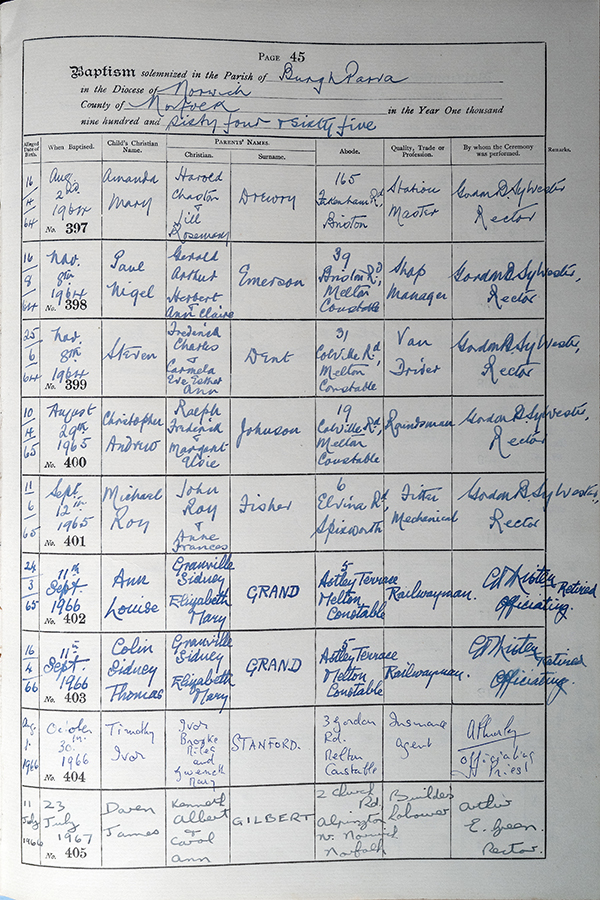 PAGE 45
Baptism solemnized in the Parish of Burgh Parva
in the Diocese of Norwich
County of Norfolk in the Year One thousand
nine hundred and sixty four & sixty five
Alleged Date of Birth. When Baptised. Child's Christian Name. PARENTS' NAMES. Christian. Surname. Abode. Quality, Trade or Profession. By whom the Ceremony was performed. Remarks.
16 / 4 / 64 Aug. 2nd 1964 No. 397 Amanda Mary Harold Charton & Jill Rosemary Drewry 165 Fakenham Rd, Briston Station Master Gordon D. Sylvester Rector
16 / 8 / 64 Nov. 8th 1964 No. 398 Paul Nigel Gerald Arthur Herbert & Ann Claire Emerson 39 Briston Rd, Melton Constable Shop Manager Gordon D. Sylvester, Rector
25 / 6 / 64 Nov. 8th 1964 No. 399 Steven Fredrick Charles & Carmela Eve Esther Ann Dent 31 Colville Rd, Melton Constable Van Driver Gordon D. Sylvester, Rector
10 / 4 / 65 August 29th 1965 No. 400 Christopher Andrew Ralph Frederick & Margaret Johnson 19 Colville Rd, Melton Constable Roundsman Gordon D. Sylvester, Rector
11 / 6 / 65 Sept. 12th 1965 No. 401 Michael Roy John Roy & Anne Frances Fisher 6 Elvina Rd, Spixworth Fitter Mechanical Gordon D. Sylvester, Rector
24 / 3 / 65 11th Sept. 1966 No. 402 Ann Louise Granville Sidney Elizabeth Mary GRAND 5 Astley Terrace Melton Constable Railwayman. Retired Officiating.
16 / 4 / 66 11th Sept. 1966 No. 403 Colin Sidney Thomas Granville Sidney Elizabeth Mary GRAND 5 Astley Terrace Melton Constable Railwayman. Retired Officiating.
1966 October 30th 1966 No. 404 Timothy Ivor Ivor Brooke Miles and Gwenneth Mary STANFORD. 3 Gordon Rd. Melton Constable Insurance Agent officiating Priest
11 July 1966 23 July 1967 No. 405 Daren James Kenneth Albert & Carol Ann GILBERT 2 Church Rd, Alpington Nr. Norwich Norfolk Builders Labourer Arthur E. Green. Rector.